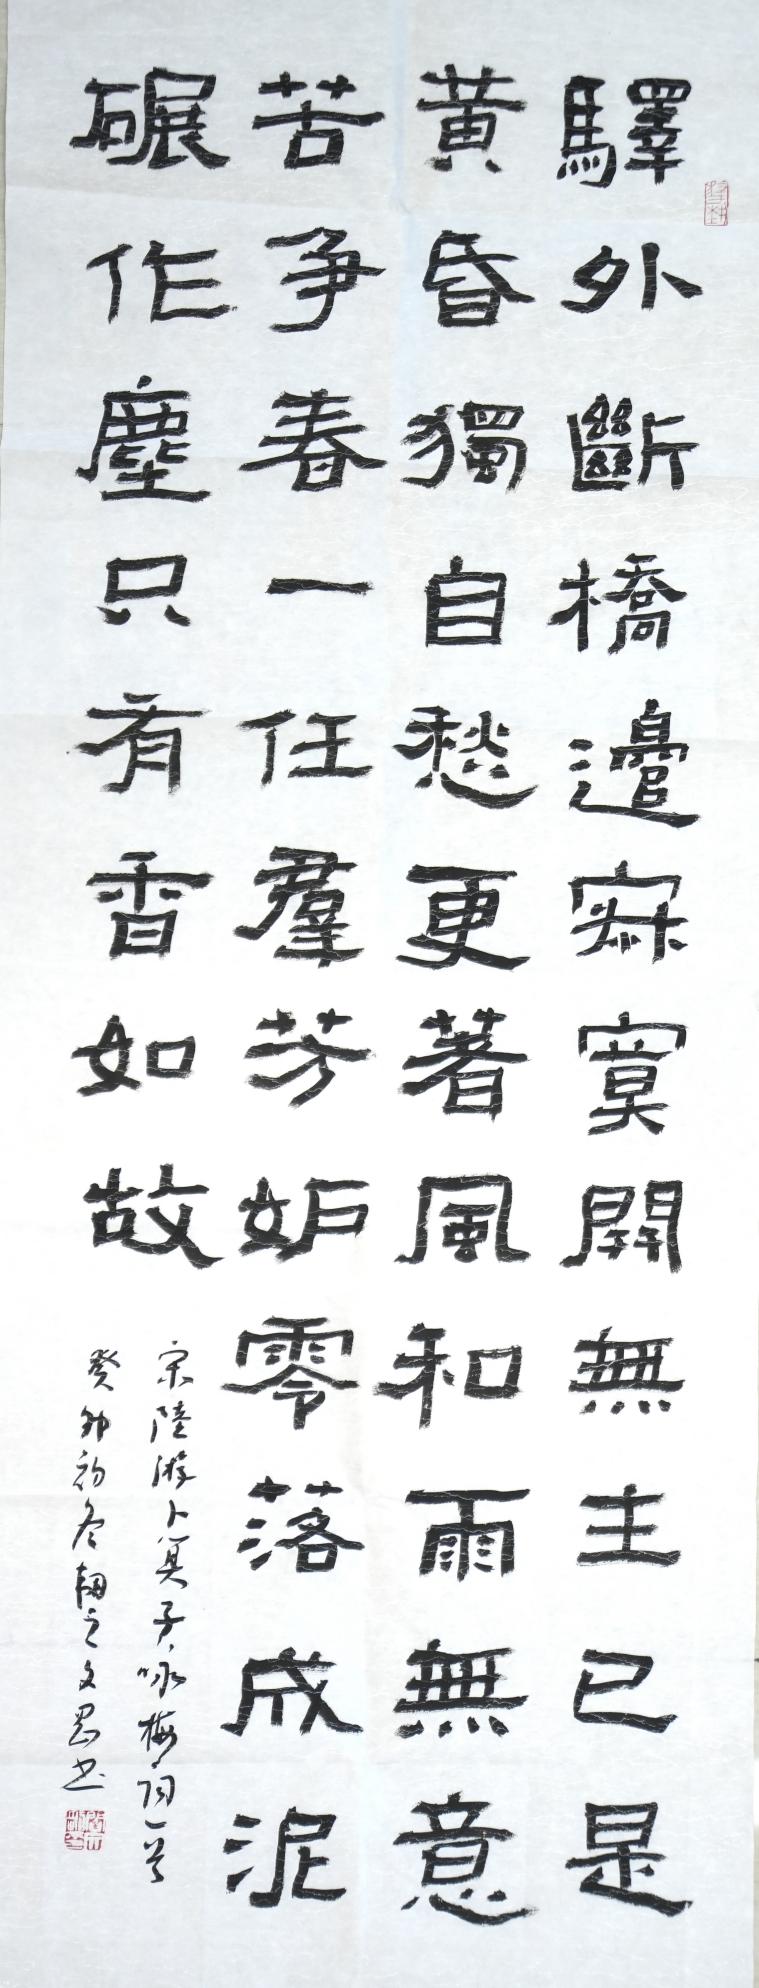 驛外斷橋邊寂寞開無主已是
黄昏獨自愁更著風和雨無意
苦爭春一任羣芳妒零落成泥
碾作塵只有香如故
宋陸游卜算子咏梅詞一首
癸卯初冬